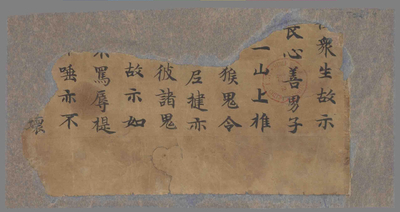 衆生故示
良心善男子
一山上推
猴鬼令
尼揵亦
彼諸鬼
故示如
不罵辱提
唾亦不
壞